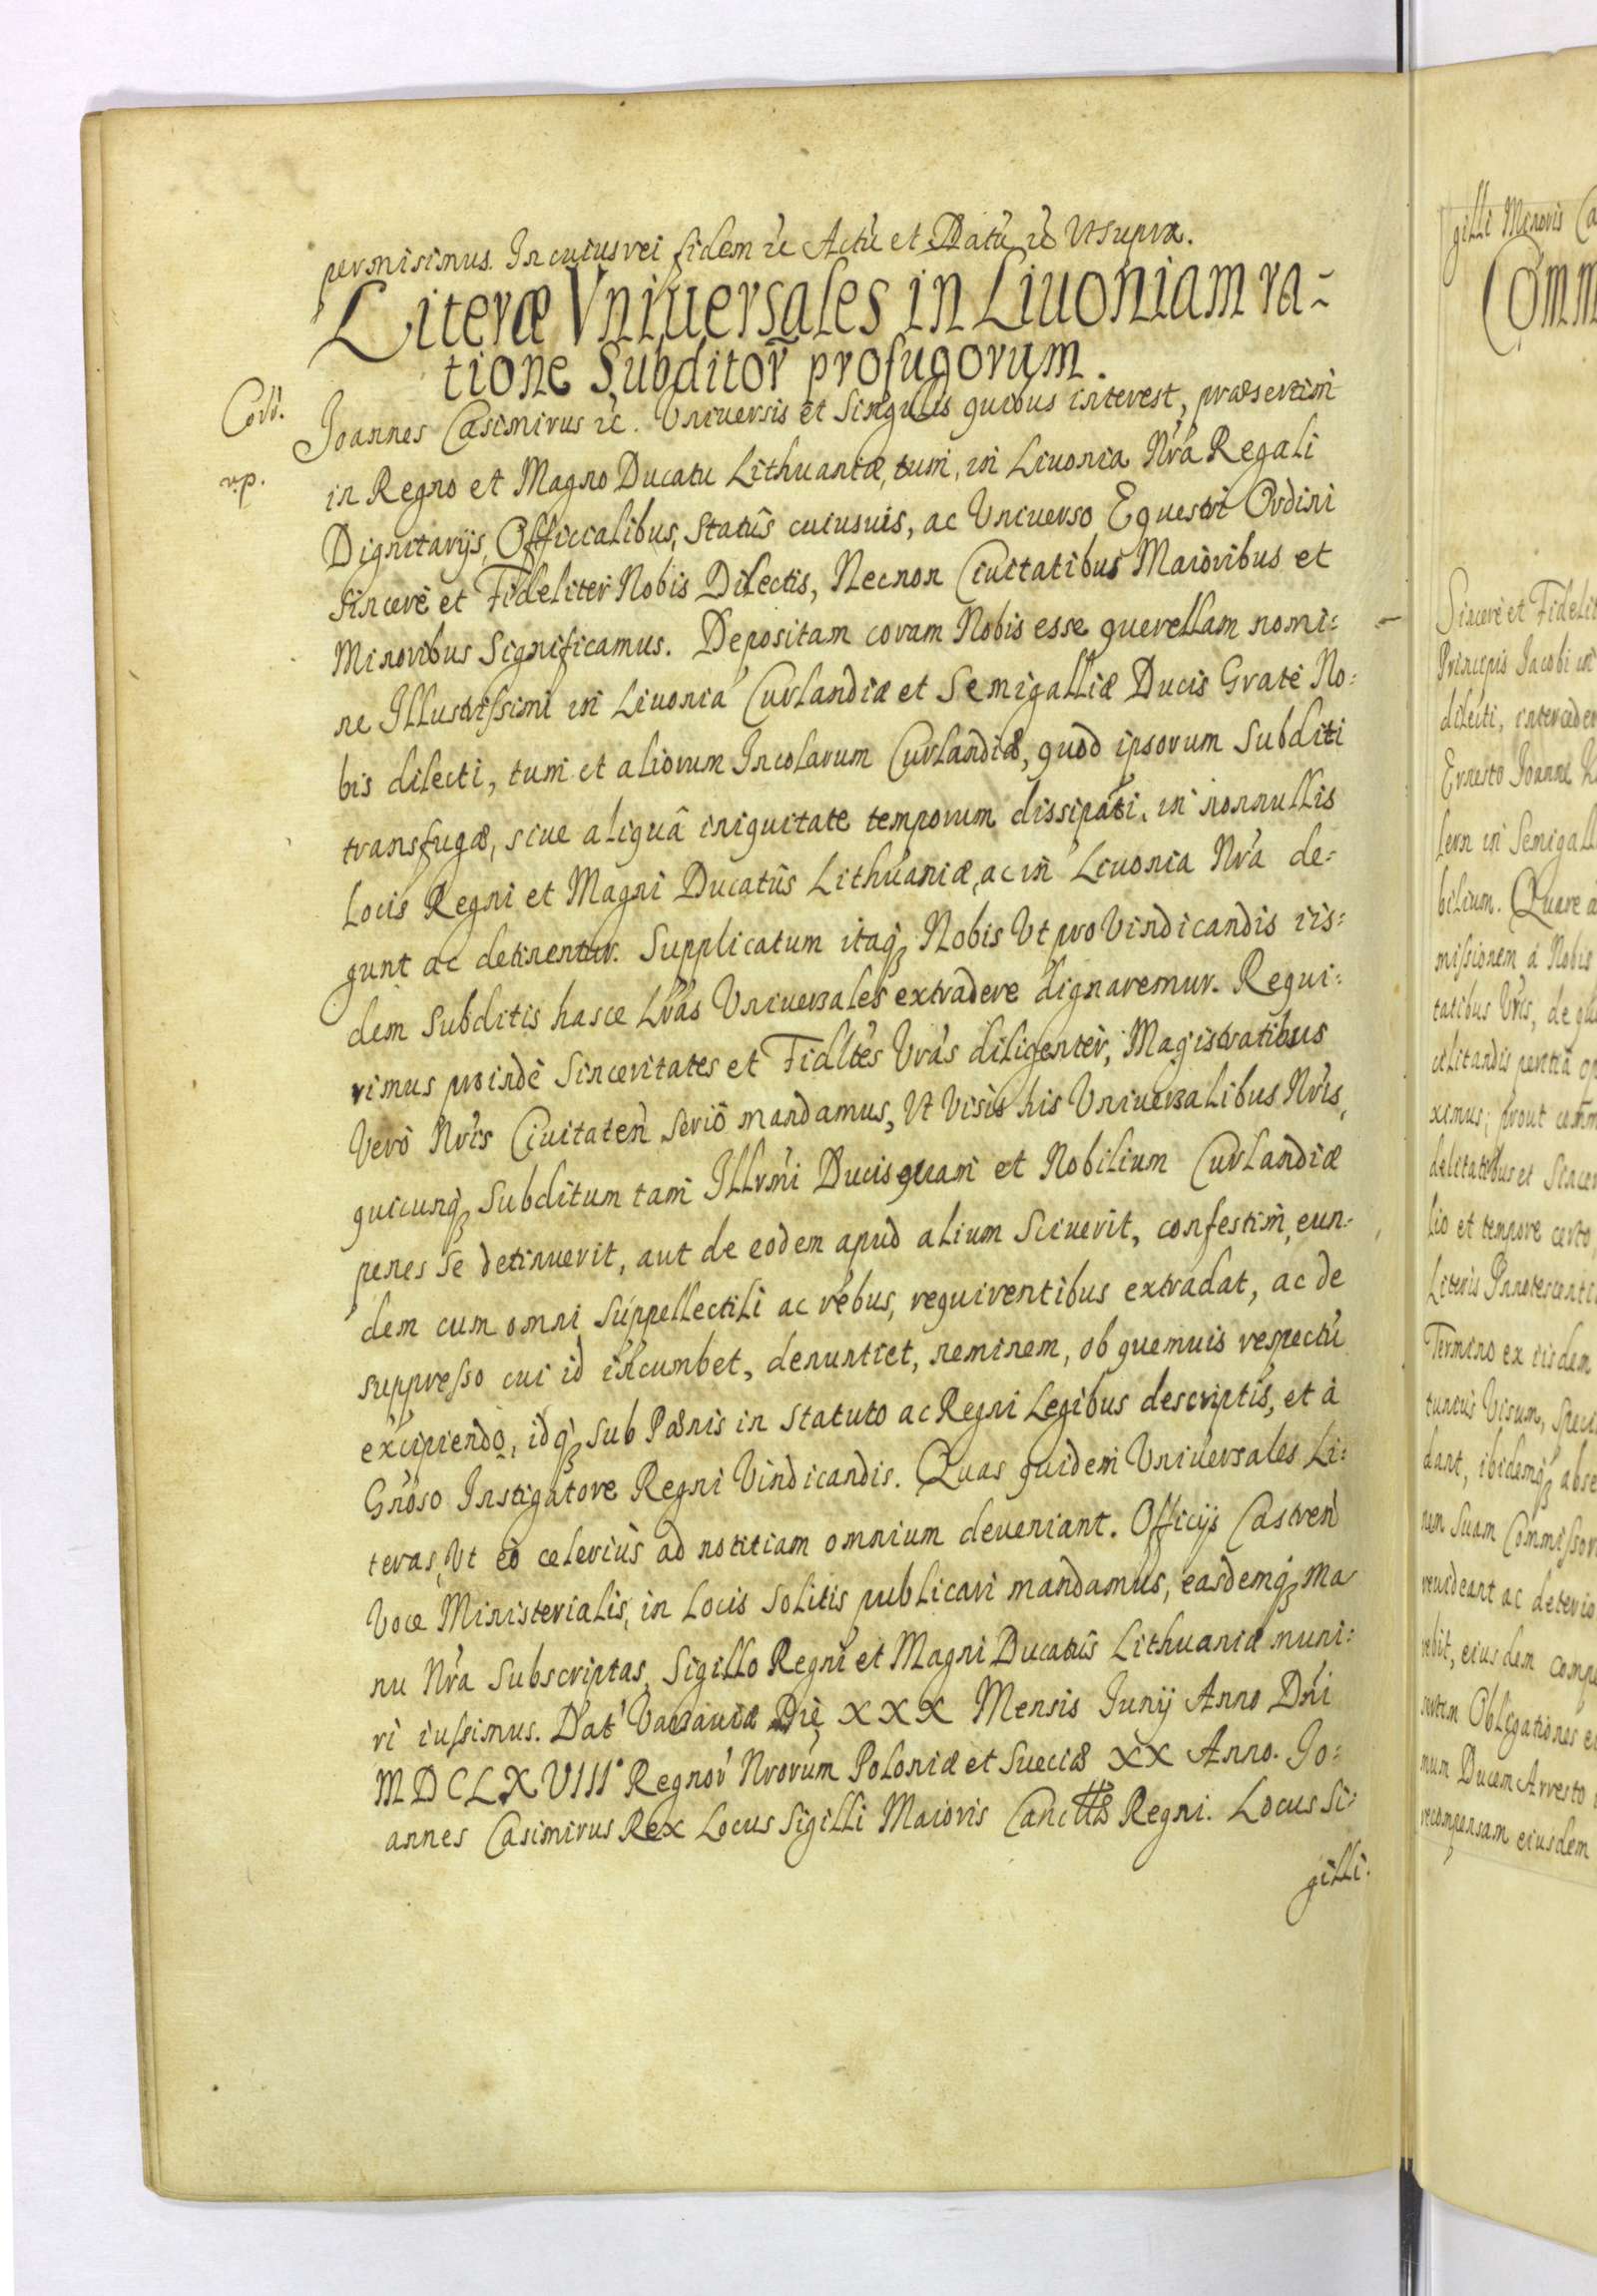 permisimus. In cuius rei fidem &c Actũ et Datũ &c Vt supra.
Literæ Vniuersales in Liuoniam ra-
tione Subditor̃ profugorum.
Joannes Casimirus &c. Vniuersis et Singulis quibus interest, præsertim
in Regno et Magno Ducatu Lithuaniæ, tum, in Liuonia Nrã Regali
Dignitarijs, Officialibus, Statûs cuiusuis, ac Vniuerso Equestri Ordini
Sincerè et Fideliter Nobis Dilectis, Necnon Ciuitatibus Maioribus et
Minoribus Significamus. Depositam coram Nobis esse querellam nomi-
ne Illustrissimi in Liuonia Curlandiæ et Semigalliæ Ducis Gratè No-
bis dilecti, tum et aliorum Incolarum Curlandiæ, quod ipsorum Subditi
transfugæ, siue aliquâ iniquitate temporum dissipati, in nonnullis
Locis Regni et Magni Ducatûs Lithuaniæ, ac in Liuonia Nrã de-
gunt ac detinentur. Supplicatum itaq; Nobis Vt pro Vindicandis iis-
dem Subditis hasce Lrãs Vniuersales extradere dignaremur. Requi-
rimus proindè Sinceritates et Fidltes Vrãs diligenter, Magistratibus
Verò Nrĩs Ciuitaten̄ Seriò mandamus, Vt Visis his Vniuersalibus Nrĩs,
quicunq; Subditum tam Illrmi Ducis quam et Nobilium Curlandiæ
penes se detinuerit, aut de eodem apud alium Sciuerit, confestim, eun-
dem cum omni Suppellectili ac rebus, requirentibus extradat, ac de
suppresso cui id incumbet, denuntiet, neminem, ob quemuis respectũ
excipiendo, idq; Sub Pœnis in Statuto ac Regni Legibus descriptis, et à
Gnõso Instigatore Regni Vindicandis. Quas quidem Vniuersales Li-
teras, Vt eò celeriùs ad notitiam omnium deueniant. Officijs Castren̄
Voce Ministerialis, in Locis Solitis publicari mandamus, easdemq; Ma-
nu Nrã Subscriptas, Sigillo Regni et Magni Ducatûs Lithuaniæ muni-
ri iussimus. Dat' Varsauiæ Die XXX Mensis Junij Anno Dñi
MDCLXVIII° Regnor̃ Nrorum Poloniæ et Sueciæ XX Anno. Jo-
annes Casimirus Rex Locus Sigilli Maioris Regni. Locus Si-
gilli.
gilli Minoris
Comm
Sincerè et Fidelit
Principis Jacobi in
dilecti, interceden
Ernesto Joanne
lern in Semigall
bilium. Quare a
missionem à Nobis
tatibus Vrĩs, de
ximus; prout comm
delitatibus et Sincer
lio et tempore certo
Literis Innotescenti
Termino ex iisdem
dant, ibidemq; abse
nem Suam Commissor
reuideant ac deterio
eiusdem comp
Obligationes
num Ducem Arresto
recompensam eiusdem